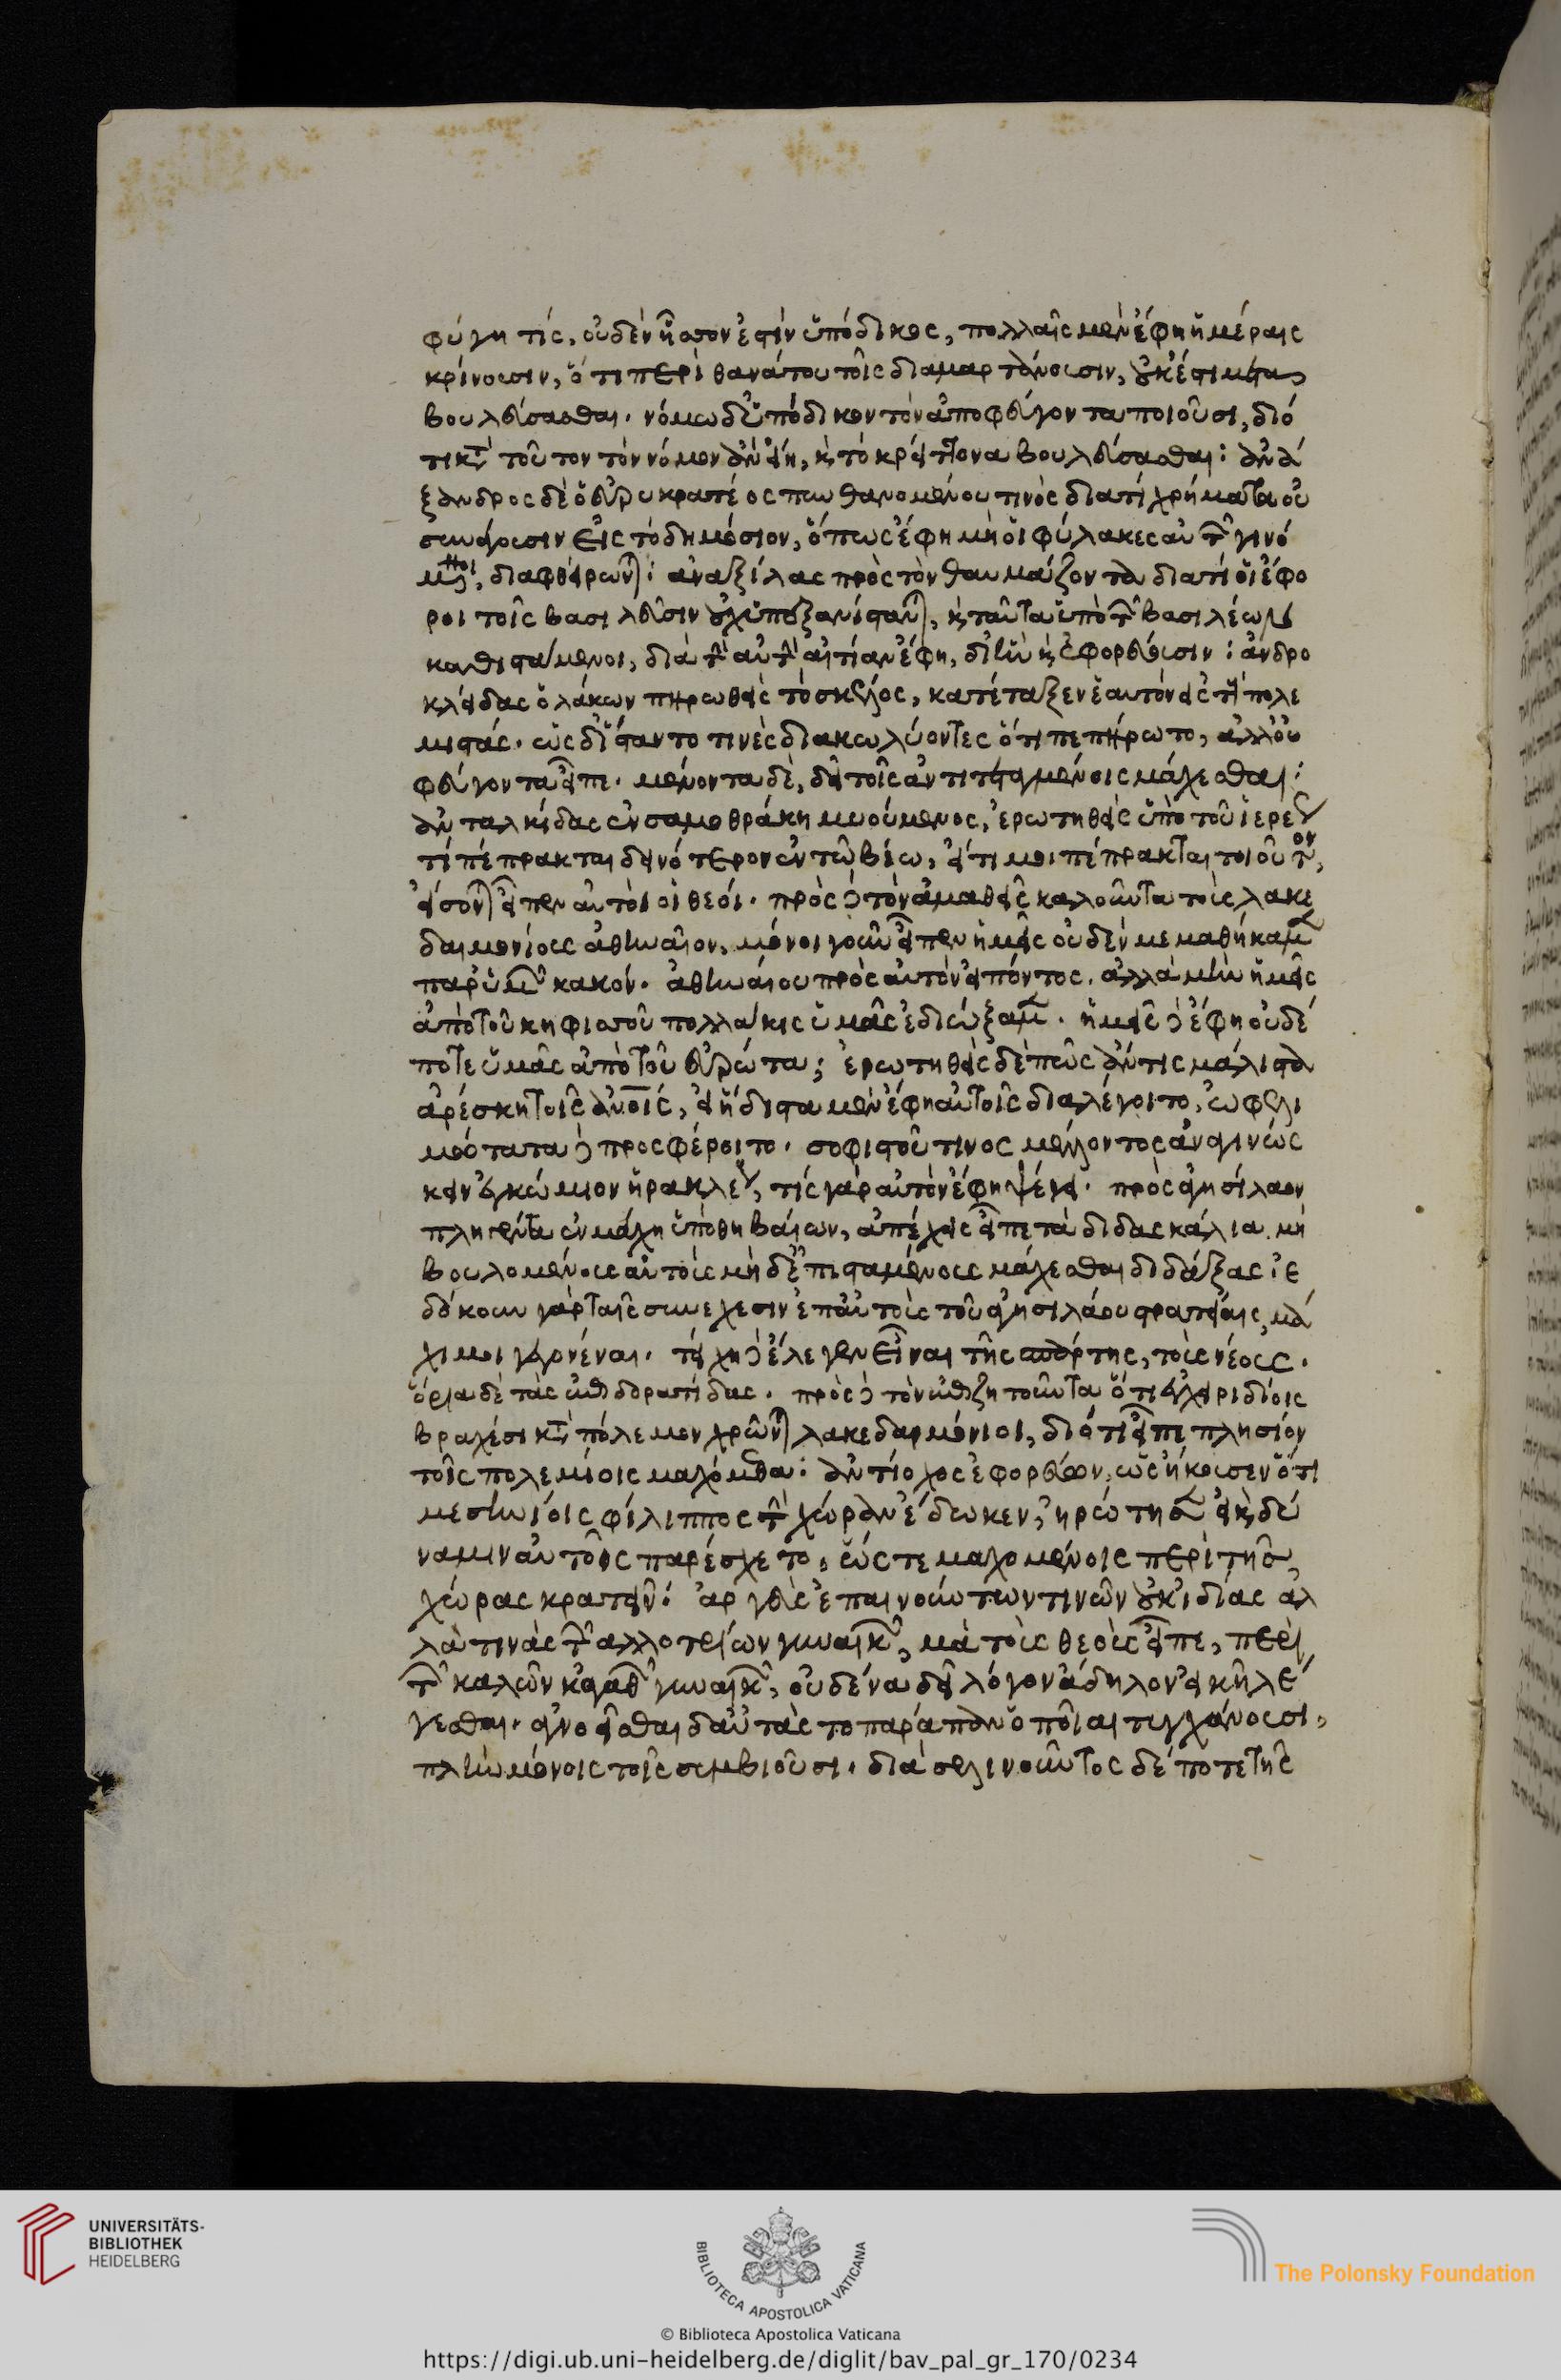 φύγη τίς, οὐδὲν ἧσσον ἐστὶν ὑπόδικος, πολλαῖς μὲν ἔφη ἡμέραις
κρίνουσιν, ὅτι περὶ θανάτου τοῖς διαμαρτάνουσιν, οὐκ ἔστι μετα
βουλεύσασθαι. νόμω δ' ὑπόδικον τὸν ἀποφεύγοντα ποιοῦσι, διό
τι κατὰ τοῦτον τὸν νόμον ἂν εἴη, καὶ τὸ κρείττονα βουλεύσασθαι: ἀνα
ξανδρος δὲ ὁ εὐρυκρατέος πυνθανομένου τινὸς διατί χρήματα οὐ
συνάγουσιν εἰς τὸ δημόσιον, ὅπως ἔφη μὴ οἱ φύλακες αὐτῶν γινό
μενοι, διαφθείρωνται: ἀναξίλας πρὸς τὸν θαυμάζοντα διατί οἱ ἔφο
ροι τοῖς βασιλεῦσιν οὐχ ὑπεξανίστανται, καὶ ταῦτα ὑπὸ τῶν βασιλέων
καθιστάμενοι, διὰ τὴν αὐτὴν αἰτίαν ἔφη, δι' ἣν καὶ ἐφορεύουσιν: ἀνδρο
κλείδας ὁ λάκων πηρωθεὶς τὸ σκέλος, κατέταξεν ἑαυτὸν εἰς τοὺς πολε
μιστάς. ὡς δ' ἵσταντο τινὲς διακωλύοντες ὅτι πεπήρωτο, ἀλλ' οὐ
φεύγοντα εἶπε. μένοντα δὲ, δεῖ τοῖς ἀντιτεταγμένοις μάχεσθαι:
ἀνταλκίδας ἐν σαμοθράκη μυούμενος, ἐρωτηθεὶς ὑπὸ τοῦ ἱερέως
τί πέπρακται δεινότερον ἐν τῶ βίω, εἴ τι μοι πέπρακται τοιοῦτον,
εἴσονται εἶπεν αὐτοὶ οἱ θεοί. πρὸς δὲ τὸν ἀμαθεῖς καλοῦντα τοὺς λακε
δαιμονίους ἀθηναῖον, μόνοι γοῦν εἶπεν ἡμεῖς οὐδὲν μεμαθήκαμεν
παρ' ὑμῶν κακόν. ἀθηναίου πρὸς αὐτὸν εἰπόντος. ἀλλὰ μὴν ἡμεῖς
ἀπὸ τοῦ κηφισσοῦ πολλάκις ὑμᾶς ἐδιώξαμεν. ἡμεῖς δὲ ἔφη οὐδέ
ποτε ὑμᾶς ἀπὸ τοῦ εὐρώτα; ἐρωτηθεὶς δὲ πῶς ἄν τις μάλιστα
ἀρέσκη τοῖς ἀνοις, εἰ ἥδιστα μὲν ἔφη αὐτοῖς διαλέγοιτο, ὠφελι
μώτατα δὲ προσφέροιτο. σοφιστοῦ τινος μέλλοντος ἀναγινώς
κειν ἐγκώμιον ἡρακλέους, τίς γὰρ αὐτὸν ἔφη ψέγει. πρὸς ἀγησίλαον
πληγέντα ἐν μάχη ὑπὸ θηβαίων, ἀπέχεις εἶπε τὰ διδασκάλια μὴ
βουλομένους αὐτοὺς μὴδ' ἐπισταμένους μάχεσθαι διδάξας: ἐ
δόκουν γὰρ ταῖς συνεχέσιν ἐπ' αὐτοὺς τοῦ ἀγησιλάου στρατείαις, μά
χιμοι γεγονέναι. τείχη δὲ ἔλεγεν εἶναι τῆς σπάρτης, τοὺς νέους.
ὅρια δὲ τὰς ἐπιδορατίδας. πρὸς δὲ τὸν ἐπιζητοῦντα ὅτι ἐγχειριδίοις
βραχέσι κατὰ πόλεμον χρῶνται λακεδαιμόνιοι, διότι εἶπε πλησίον
τοῖς πολεμίοις μαχόμεθα: ἀντίοχος ἐφορεύων, ὡς ἤκουσεν ὅτι
μεσηνίοις φίλιππος τὴν χώραν ἔδωκεν, ἠρώτησεν εἰ καὶ δύ
ναμιν αὐτοῖς παρέσχετο, ὥστε μαχομένοις περὶ τῆς
χώρας κρατεῖν: ἀργεὺς ἐπαινούντων τινῶν οὐκ ἰδίας ἀλ
λὰ τινὰς τῶν ἀλλοτρίων γυναικῶν, μὰ τοὺς θεοὺς εἶπε, περὶ
τῶν καλῶν κἀγαθῶν γυναικῶν, οὐδένα δεῖ λόγον ἄδηλον εἰκῆ λέ
γεσθαι. ἀγνοεῖσθαι δ' αὐτὰς τοπαράπαν ὁποῖαι τυγχάνουσι,
πλὴν μόνοις τοῖς συμβιοῦσι. διὰ σελινοῦντος δέ ποτε τῆς
UNIVERSITÄTS-
BIBLIOTHEK
HEIDELBERG
BIBLIOTECA APOSTOLICA VATICANA
The Polonsky Foundation
© Biblioteca Apostolica Vaticana
https://digi.ub.uni-heidelberg.de/diglit/bav_pal_gr_170/0234